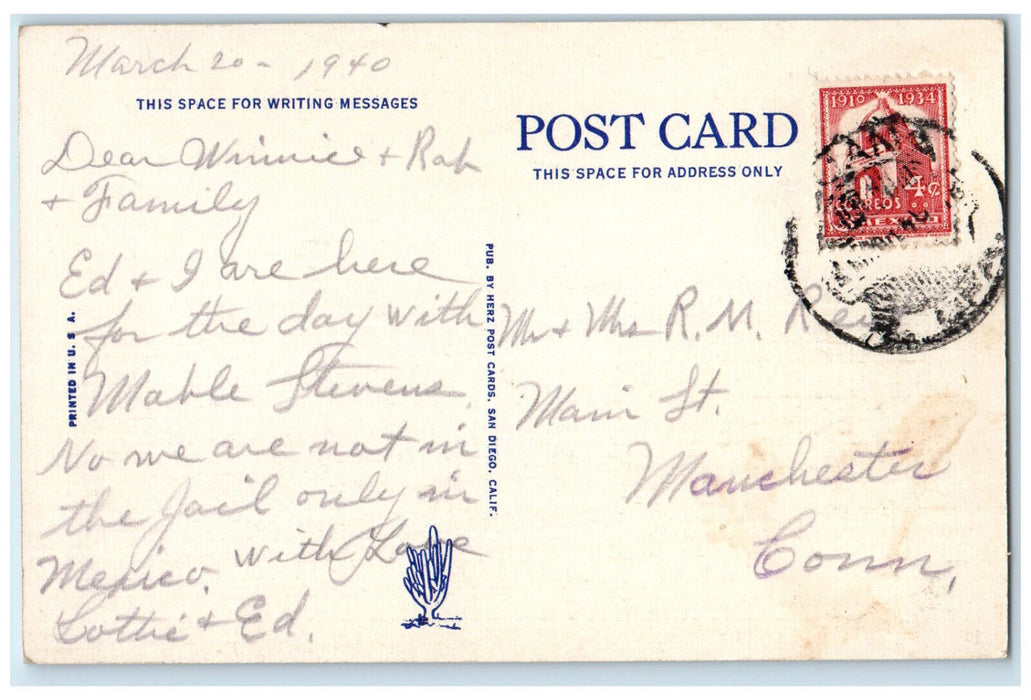 March 20 - 1940
THIS SPACE FOR WRITING MESSAGES
Dear Winnie + Rob
+ Family
Ed + I are here
for the day with
Mable Stevens.
No we are not in
the Jail only in
Mexico. With Love
Lottie + Ed.
PRINTED IN U. S. A.
PUB. BY HERZ POST CARDS, SAN DIEGO, CALIF.
POST CARD
THIS SPACE FOR ADDRESS ONLY
1910 1934
4¢
CORREOS
MEXICO
Mr + Mrs R. M. Reid
Main St.
Manchester
Conn.